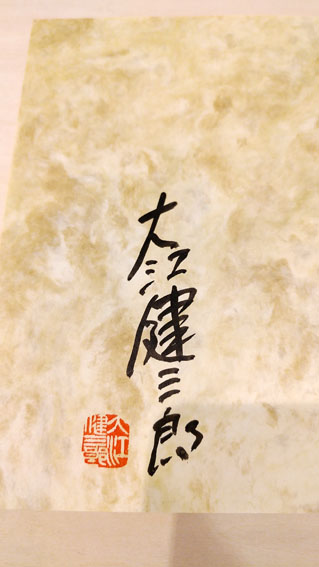 大江健三郎
大江
健三郎